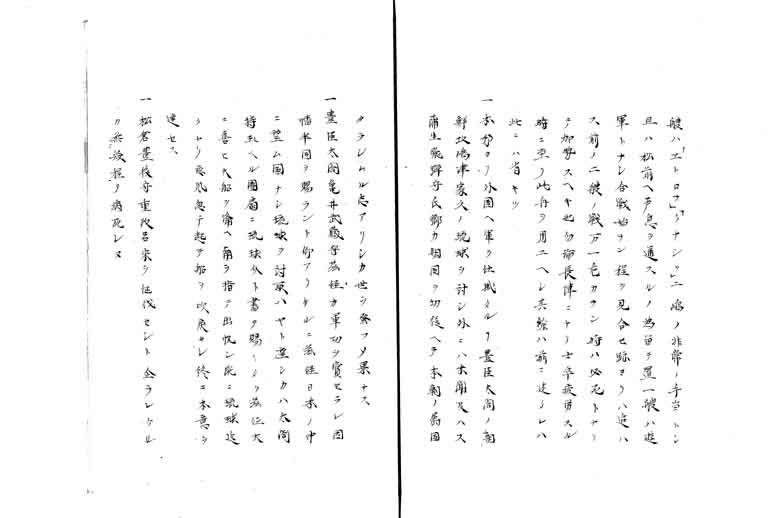 艘ハ「エトロフ」「クナシリ」ニ臨ノ非常ノ手当トシ
且ハ松前ヘ声息ヲ通スルノ為留テ置一艘ハ遊
軍トナシ合戦始ラン程ヲ見合セ跡ヨリハ遊ハ
ス前ノ二艘ノ戦万一危カラン時ハ必死トナリ
テ加勢スヘキ也勿論長陣ニナリ士卒疲労スル
時ニ至リ此舟ヲ用ユヘシ其盤ハ前ニ述タレハ
此ニハ省キツ
一本邦ヨリ外国ヘ軍ヲ仕掛タルヿ豊臣太閤ノ朝
鮮攻嶋津家久ノ琉球ヲ討シ外ニハ未聞又ハス
蒲生飛騨守氏郷カ朝国ヲ切従ヘテ本朝ノ属国
タラシムル志アリシカ世ヲ早フメ果ナス
一豊臣太閤亀井武蔵守茲矩カ軍功ヲ賞セラレ因
幡半国ヲ賜ラント仰アリケルニ茲矩日本ノ中
ニ望ム国ナシ琉球ヲ討取ハヤト望シカハ太閤
持玉ヘル団扇ニ琉球守ト書テ賜リケリ茲矩大
ニ喜ヒ大船ヲ備ヘ南ヲ指テ出帆シ既ニ琉球近
クナリ悪風忽チ起テ船ヲ吹戻サレ終ニ本意ヲ
達セス
一松倉豊後守重政呂宋ヲ征伐セント企ラレケル
カ無程ノ病死レヌ